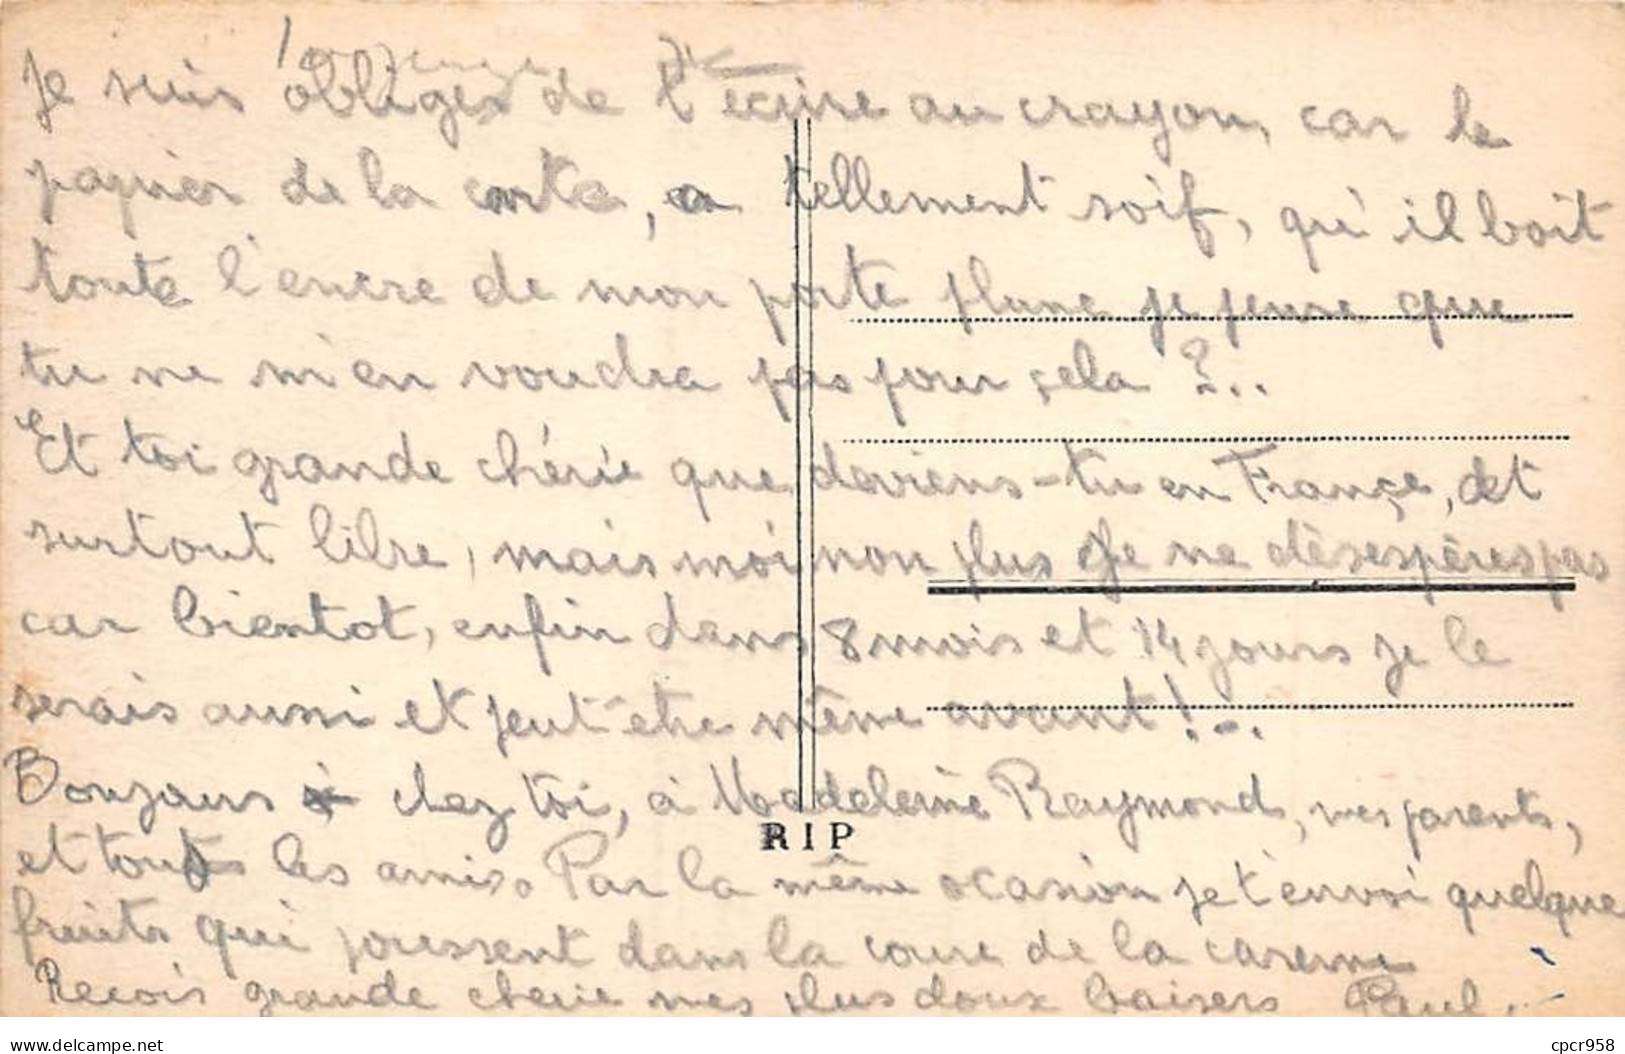 Je suis obliger de t'écrire au crayon, car le
papier de la carte, a tellement soif, qu'il boit
toute l'encre de mon porte plume je pense que
tu ne m'en voudra pas pour çela ?..
Et toi grande chérie que deviens-tu en Françe, et
surtout libre, mais moi non plus Je ne désespères pas
car bientot, enfin dans 8 mois et 14 jours je le
serais aussi et peut-être même avant !..
Bonjours à chez toi, à Madeleine Raymond, mes parents,
et tous les amis. Par la même ocasion je t'envoi quelque
fruits qui poussent dans la coure de la caserne
Recois grande cherie mes plus doux baisers Paul.
RIP
delcampe.net
cpcr958